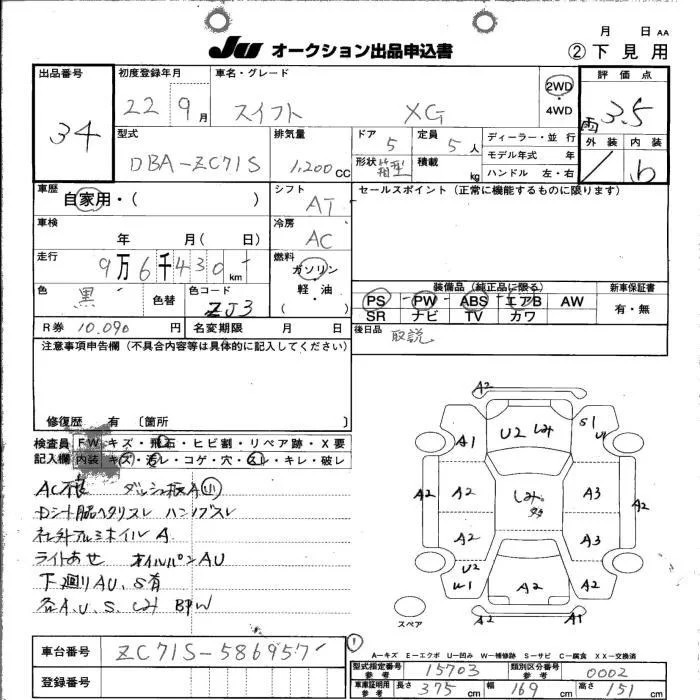 月 日 AA
JU オークション出品申込書 ② 下見用
出品番号 初度登録年月 車名・グレード 2WD 評価点
34 22 9月 スイフト XG ・4WD 雨 3.5
型式 排気量 ドア 定員 ディーラー・並行 外装 内装
DBA-ZC71S 1,200cc 5 5人 モデル年式 年 b
形状 箱型 積載 kg ハンドル 左・右
車歴 シフト セールスポイント(正常に機能するものに限ります)
自家用・( ) AT
車検 冷房
年 月( 日) AC
走行 燃料
9万6千430km ガソリン
色 黒 色替 色コード ZJ3 ・軽・油 ( )
装備品(純正品に限る) 新車保証書
PS PW ABS エアB AW 有・無
SR ナビ TV カワ
R券 10.090円 名変期限 月 日 後日品 取説
注意事項申告欄(不具合内容等は具体的に記入してください)
修復歴 有 〔箇所 〕
検査員 FW キズ・飛石・ヒビ割・リペア跡・X要
記入欄 内装 キズ・汚レ・コゲ・穴・スレ・キレ・破レ
AC不良 ダッシュ板A小
Dシート脇ヘタリスレ ハンドブスレ
社外アルミホイルA
ライトあせ オイルパンAU
下廻りAU、S有
各A.U.S.しみ BPW
A2
A1 U2 しみ S1 U1
A2 A2 しみ 多 A3 A2
A2 A3
U2
W1 A2
A2 A1
スペア
A-キズ E-エクボ U-凹み W-補修跡 S-サビ C-腐食 XX-交換済
車台番号 ZC71S-586957
登録番号
①
型式指定番号 参考 15703 類別区分番号 参考 0002
車庫証明用 参考 長さ 375cm 幅 169cm 高さ 151cm